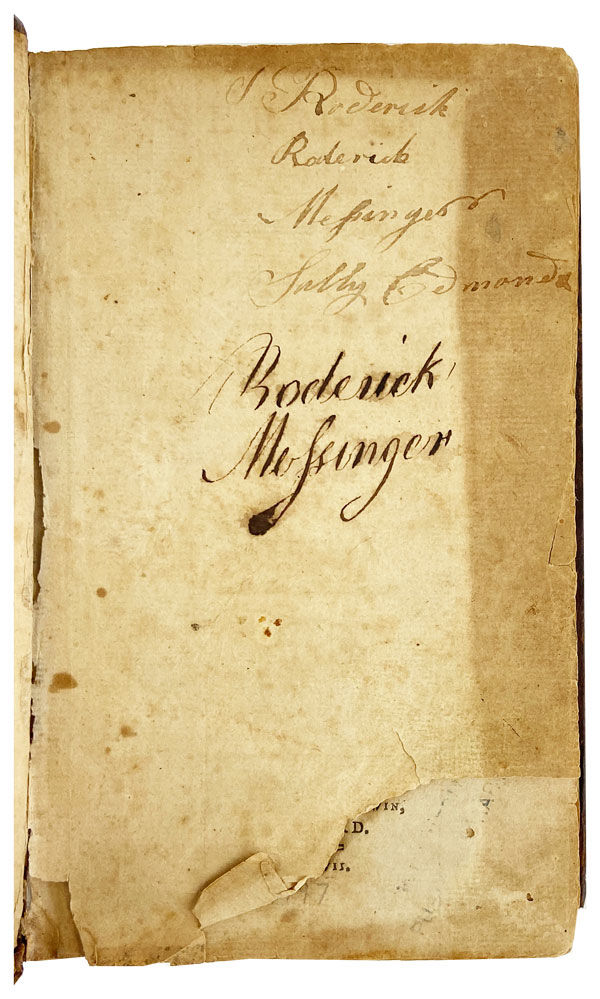 Roderick
Roderick
Meſsinger
Sally Edmonds
Roderick
Meſsinger
WIN,
D.
VII.
17